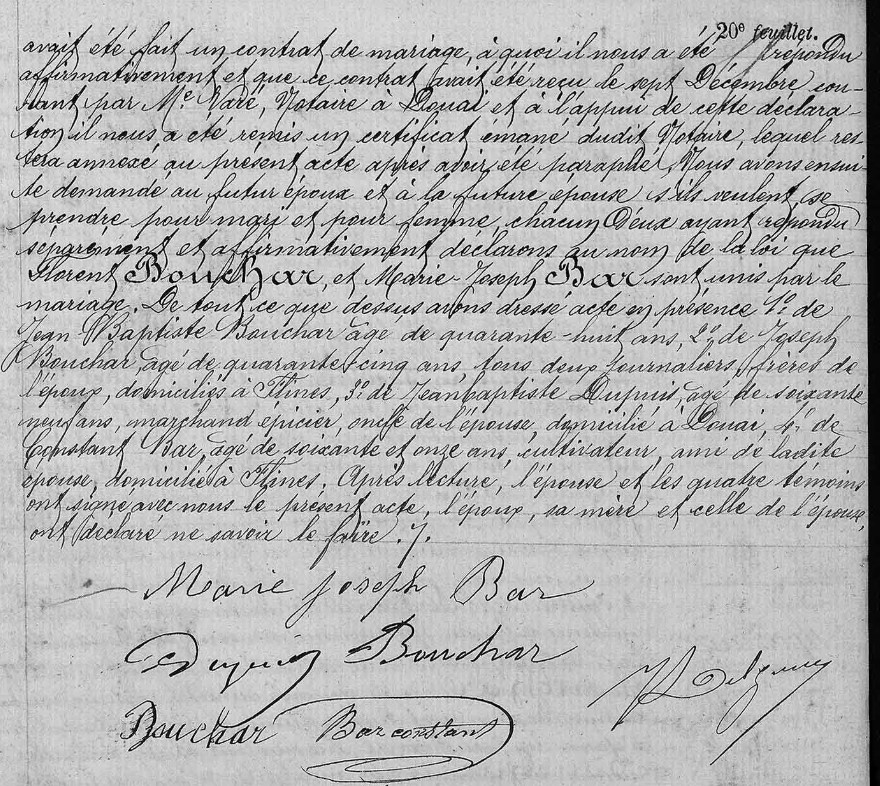 20e feuillet.
avait été fait un contrat de mariage, à quoi il nous a été répondu
affirmativement et que ce contrat avait été reçu le sept Décembre cou-
rant par Me Varé, Notaire à Douai et à l'appui de cette déclara-
tion il nous a été remis un certificat émané dudit Notaire, lequel res-
tera annexé au présent acte après avoir été paraphé, Nous avons ensui-
te demandé au futur époux et à la future épouse s'ils veulent se
prendre pour mari et pour femme, chacun d'eux ayant répondu
séparément et affirmativement déclarons au nom de la loi que
Florent Bouchar, et Marie-Joseph Bar sont unis par le
mariage. De tout ce que dessus avons dressé acte en présence 1o de
Jean Baptiste Bouchar âgé de quarante-huit ans, 2o de Joseph
Bouchar, âgé de quarante-cinq ans tous deux journaliers, frères de
l'époux, domiciliés à Flines, 3o de Jean baptiste Dupuis, âgé de soixante
neuf ans, marchand épicier, oncle de l'épouse, domicilié à Douai, 4o de
Constant Bar, âgé de soixante et onze ans, cultivateur, ami de ladite
épouse, domicilié à Flines. Après lecture, l'épouse et les quatre témoins
ont signé avec nous le présent acte, l'époux, sa mère et celle de l'épouse,
ont déclaré ne savoir le faire. /.
Marie joseph Bar
Dupuis Bouchar
Bouchar Bar constant